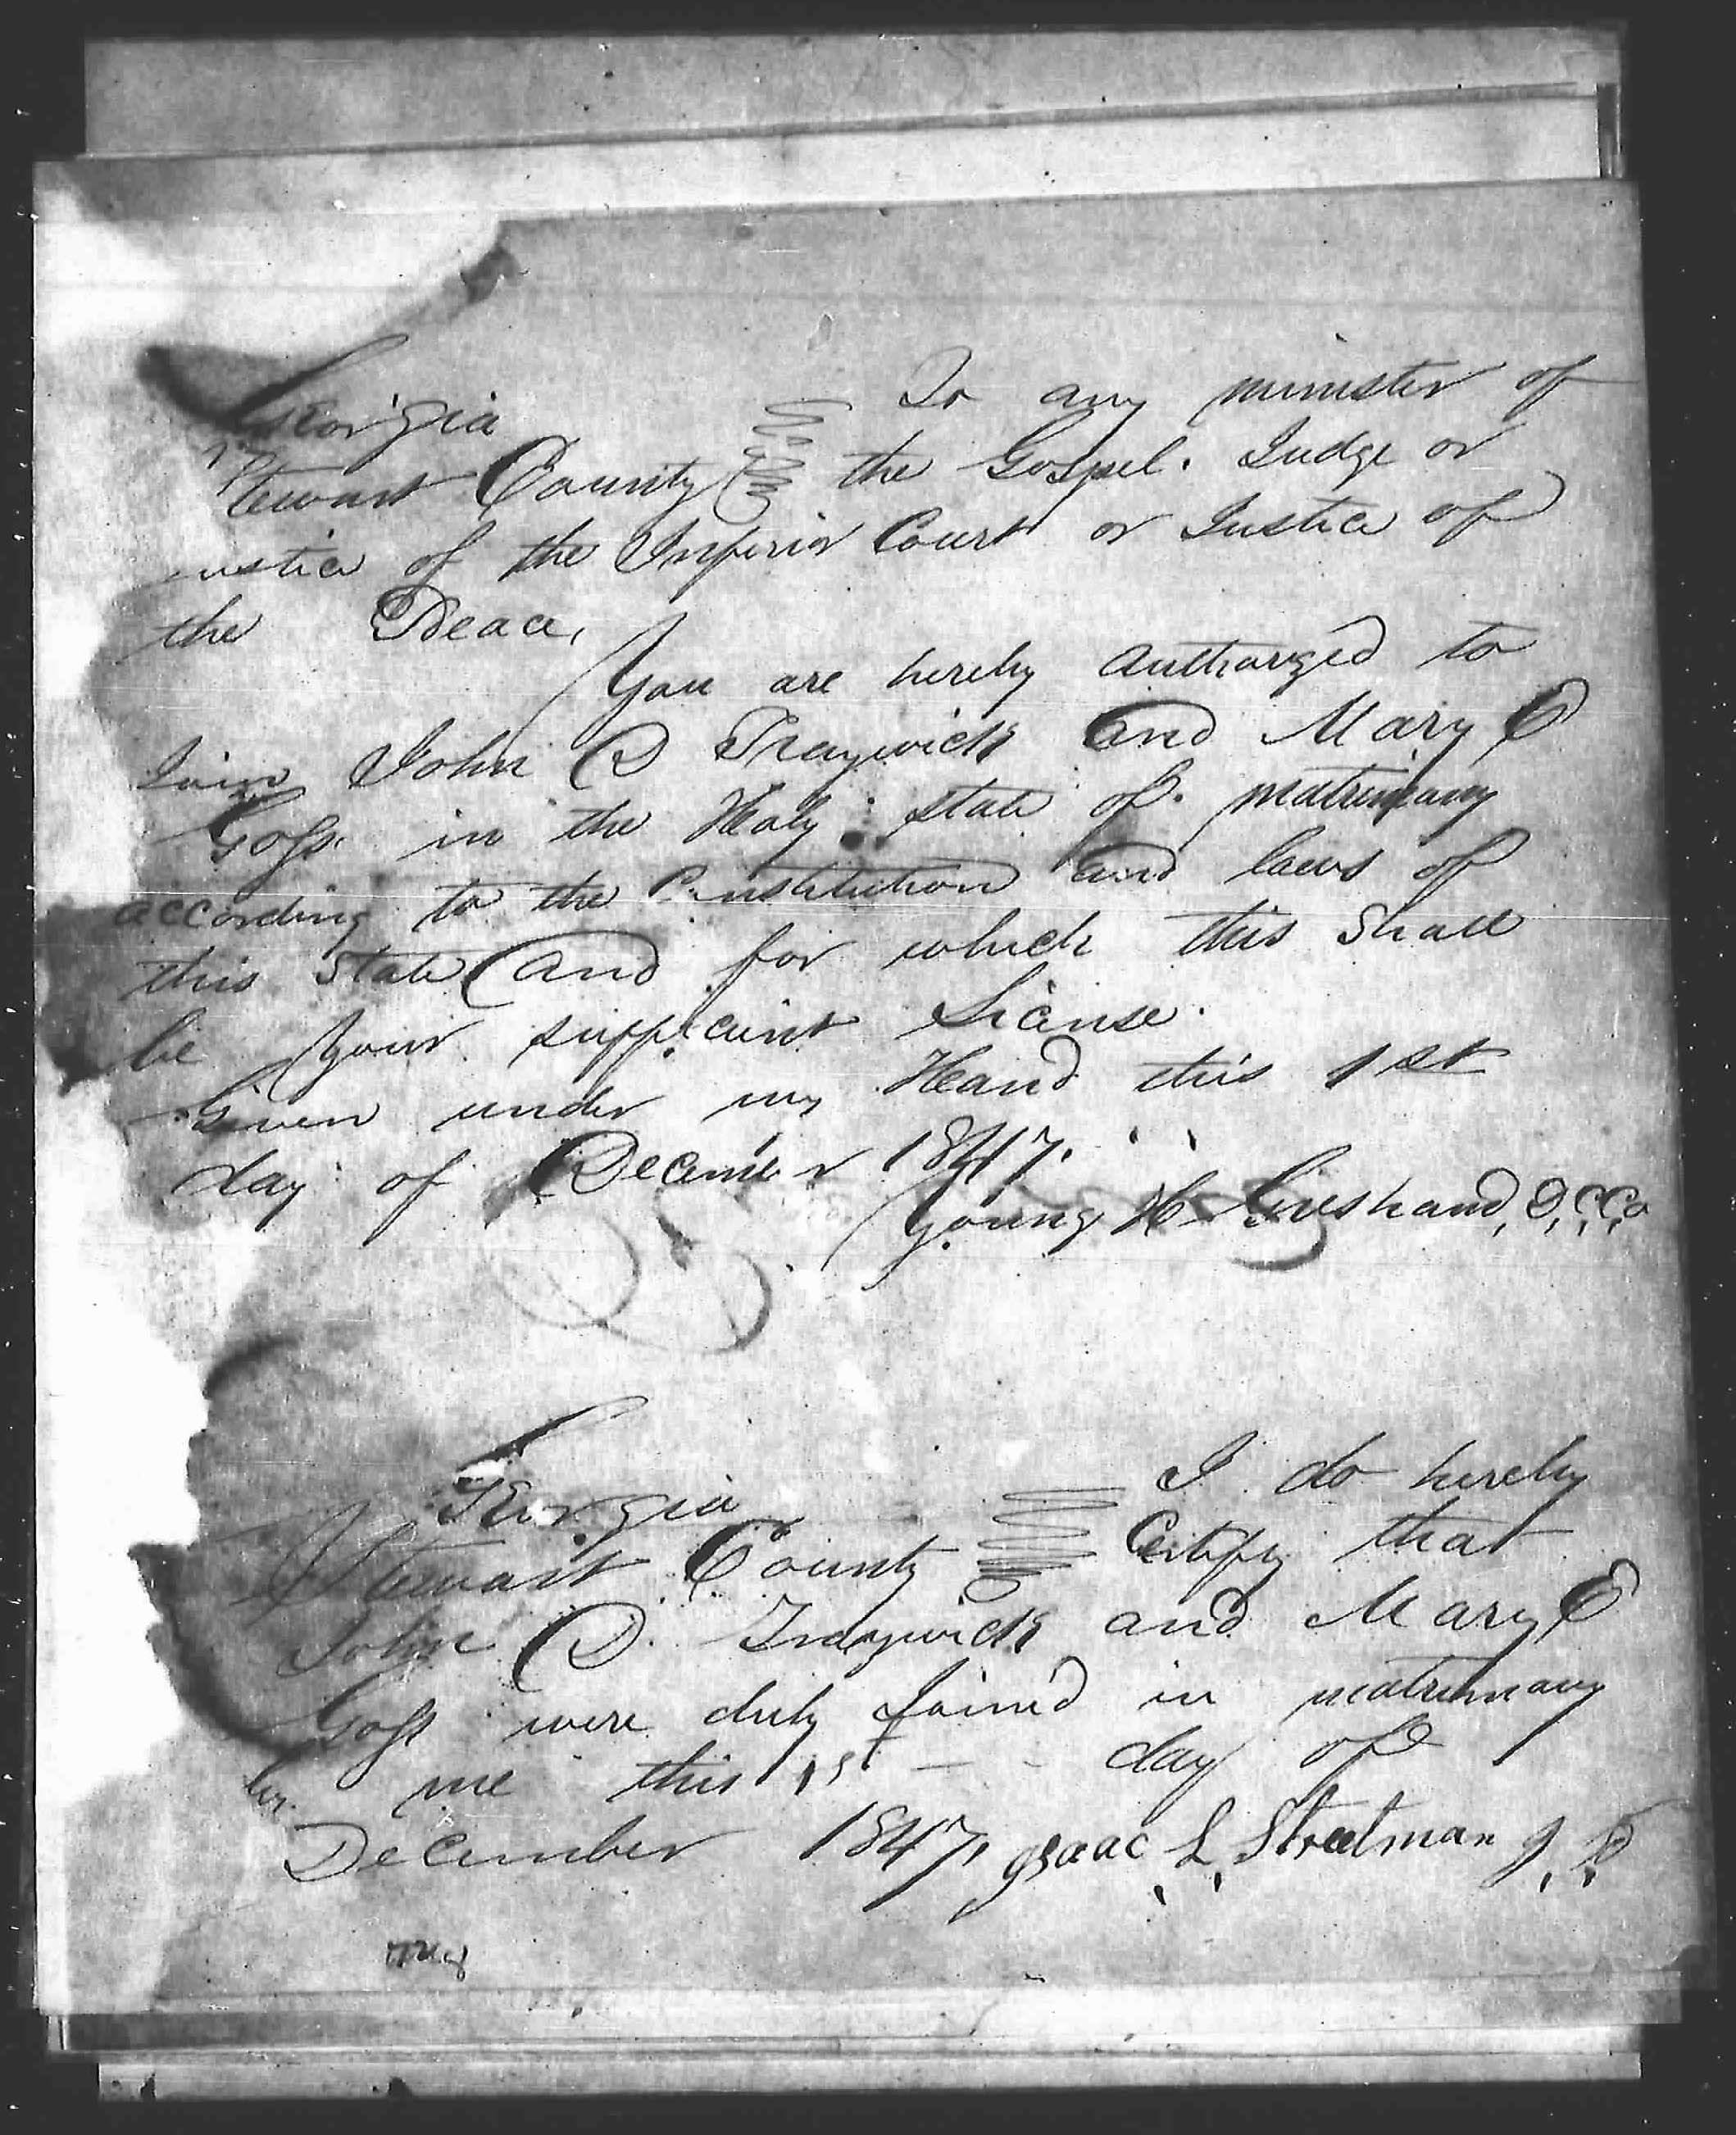 Georgia To any minister of
Stewart County the Gospel. Judge or
ustice of the Inferior Court or Justice of
the Peace,
You are hereby authorized to
Join John D Traywick and Mary E
Goss in the Holy state of matrimony
according to the Constitution and laws of
this State and for which this shall
be your sufficient License.
Given under my Hand this 1st
day of December 1847.
Young H Greshand, D,C,C,o
Georgia I do hereby
Stewart County Certify that
John D. Traywick and Mary E
Goss were duly Joind in matrimony
by me this 1st day of
December 1847, Isaac L Streetman J. P